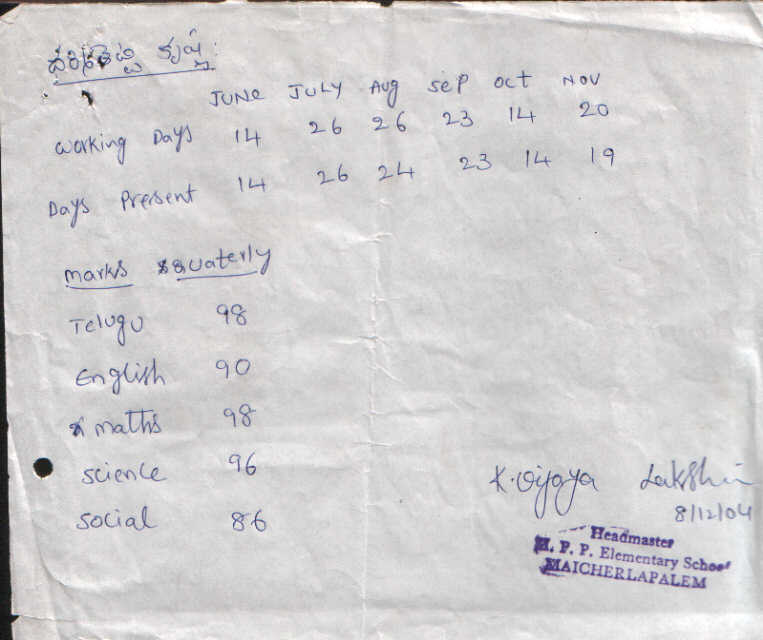 JUNE JULY Aug Sep Oct NOV
Working Days 14 26 26 23 14 20
Days Present 14 26 24 23 14 19
marks Quaterly
Telugu 98
English 90
maths 98
Science 96
Social 86
K. Vijaya Lakshmi
8/12/04
Headmaster
M. P. P. Elementary School
MAICHERLAPALEM